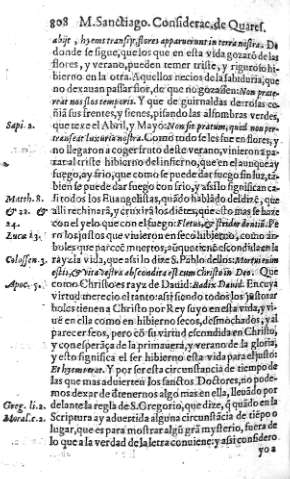 808 M. Sanctiago. Considerac. de Quares.
abijt, hyems transiit, flores apparuerunt in terra nostra. De
donde se sigue, que los que en esta vida gozarō de las
flores, y verano, pueden temer triste, y riguroso hi
bierno en la otra. Aquellos necios de la sabiduria, que
no dexauan passar flor, de que no gozassen: Non prate-
reat nos flos temporis. Y que de guirnaldas de rosas co-
ñiã sus frentes, y sienes, pisando las alfombras verdes,
Sapi. 2. que texe el Abril, y Mayo: Non sit pratum, quod non per-
transeat luxuria nostra. Como todo se les fue en flores, y
no llegaron a coger fruto deste verano, vinieron a pa
rar al triste hibierno del infierno, que en el aunque ay
fuego, ay frio, que como se puede dar fuego sin luz, tā
bien se puede dar fuego con frio, y assi lo significan ca
Matth. 8. si todos los Euangelistas, quādo hablādo del dizē, que
& 22. & alli rechinarā, y cruxirā los diētes, que esto mas se haze
24. con el yelo que con el fuego: Fletus, & stridor dentiū. Pe
Luca 13. ro los justos que viuieron en seco hibierno, como ar-
boles que parecē muertos, aūque tienē escondida en la
Colossen. 3. rayz la vida, que assi lo dize S. Pablo dellos: Mortui enim
estis, & vita vestra abscondita est cum Christo in Deo: Que
Apoc. 5. como Christo es rayz de Dauid: Radix Dauid. En cuya
virtud merecio el tanto: assi siendo todos los justos ar
boles tienen a Christo por Rey suyo en esta vida, y vi-
uē en ella como en hibierno secos, desmochados, y al
parecer feos, pero cō su virtud escondida en Christo,
y con esperāça de la primauera, y verano de la gloria,
y esto significa el ser hibierno esta vida para el justo:
Et hyems erat. Y por ser esta circunstancia de tiempo de
las que mas aduierten los sanctos Doctores, no pode-
mos dexar de detenernos algo mas en ella, lleuādo por
Greg. li. 2. delante la regla de S. Gregorio, que dize, q̄ quādo en la
Moral. c. 2. Scriptura ay aduertida alguna circunstācia de tiēpo o
lugar, que es para mostrar algū grā mysterio, fuera de
lo que a la verdad de la letra conuiene: y assi considero
yo a